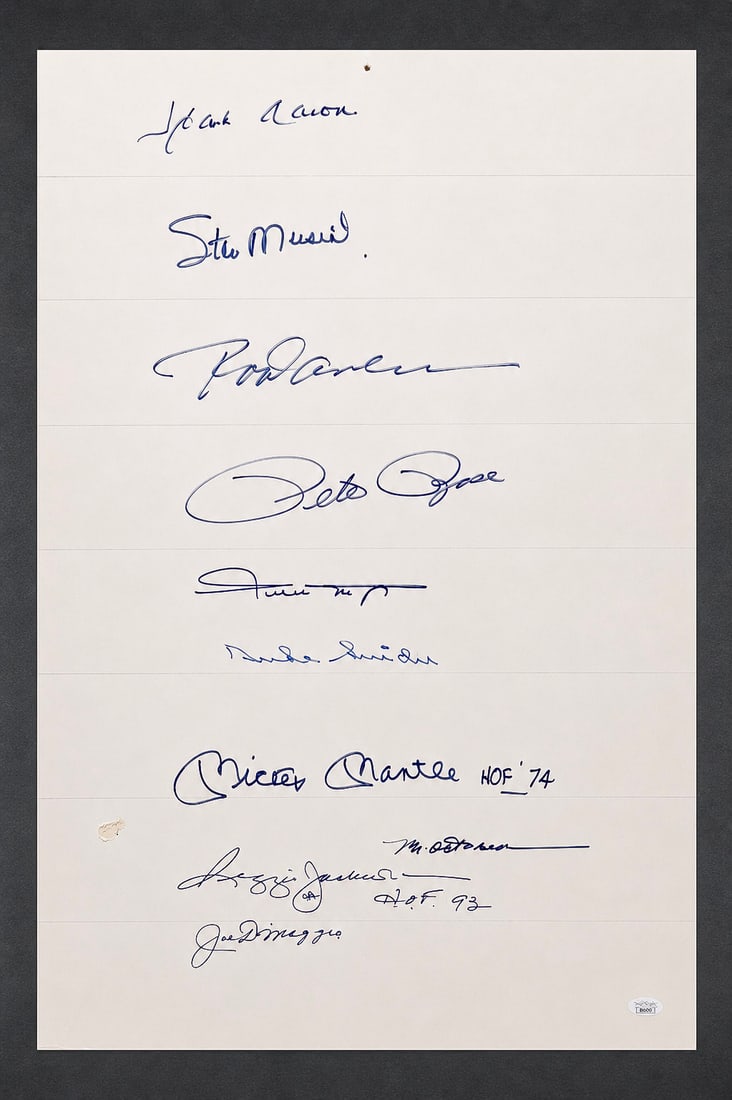 Hank Aaron
Stan Musial
Rod Carew
Pete Rose
Willie Mays
Duke Snider
Mickey Mantle HOF '74
Mr. October
Reggie Jackson
H.O.F. 93
Joe DiMaggio